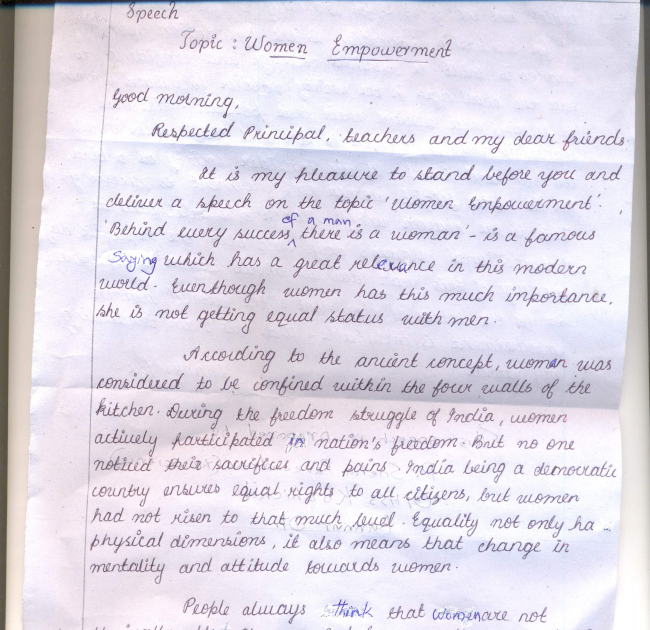 Speech
Topic : Women Empowerment
Good morning,
Respected Principal, teachers and my dear friends.
It is my pleasure to stand before you and
deliver a speech on the topic 'Women Empowerment'.
'Behind every success of a man there is a woman' - is a famous
Saying which has a great relevance in this modern
world. Eventhough women has this much importance,
she is not getting equal status with men.
According to the ancient concept, woman was
considered to be confined within the four walls of the
kitchen. During the freedom struggle of India, women
actively participated in nation's freedom. But no one
noticed their sacrifices and pains. India being a democratic
country ensures equal rights to all citizens, but women
had not risen to that much level. Equality not only ha
physical dimensions, it also means that change in
mentality and attitude towards women.
People always think that women are not